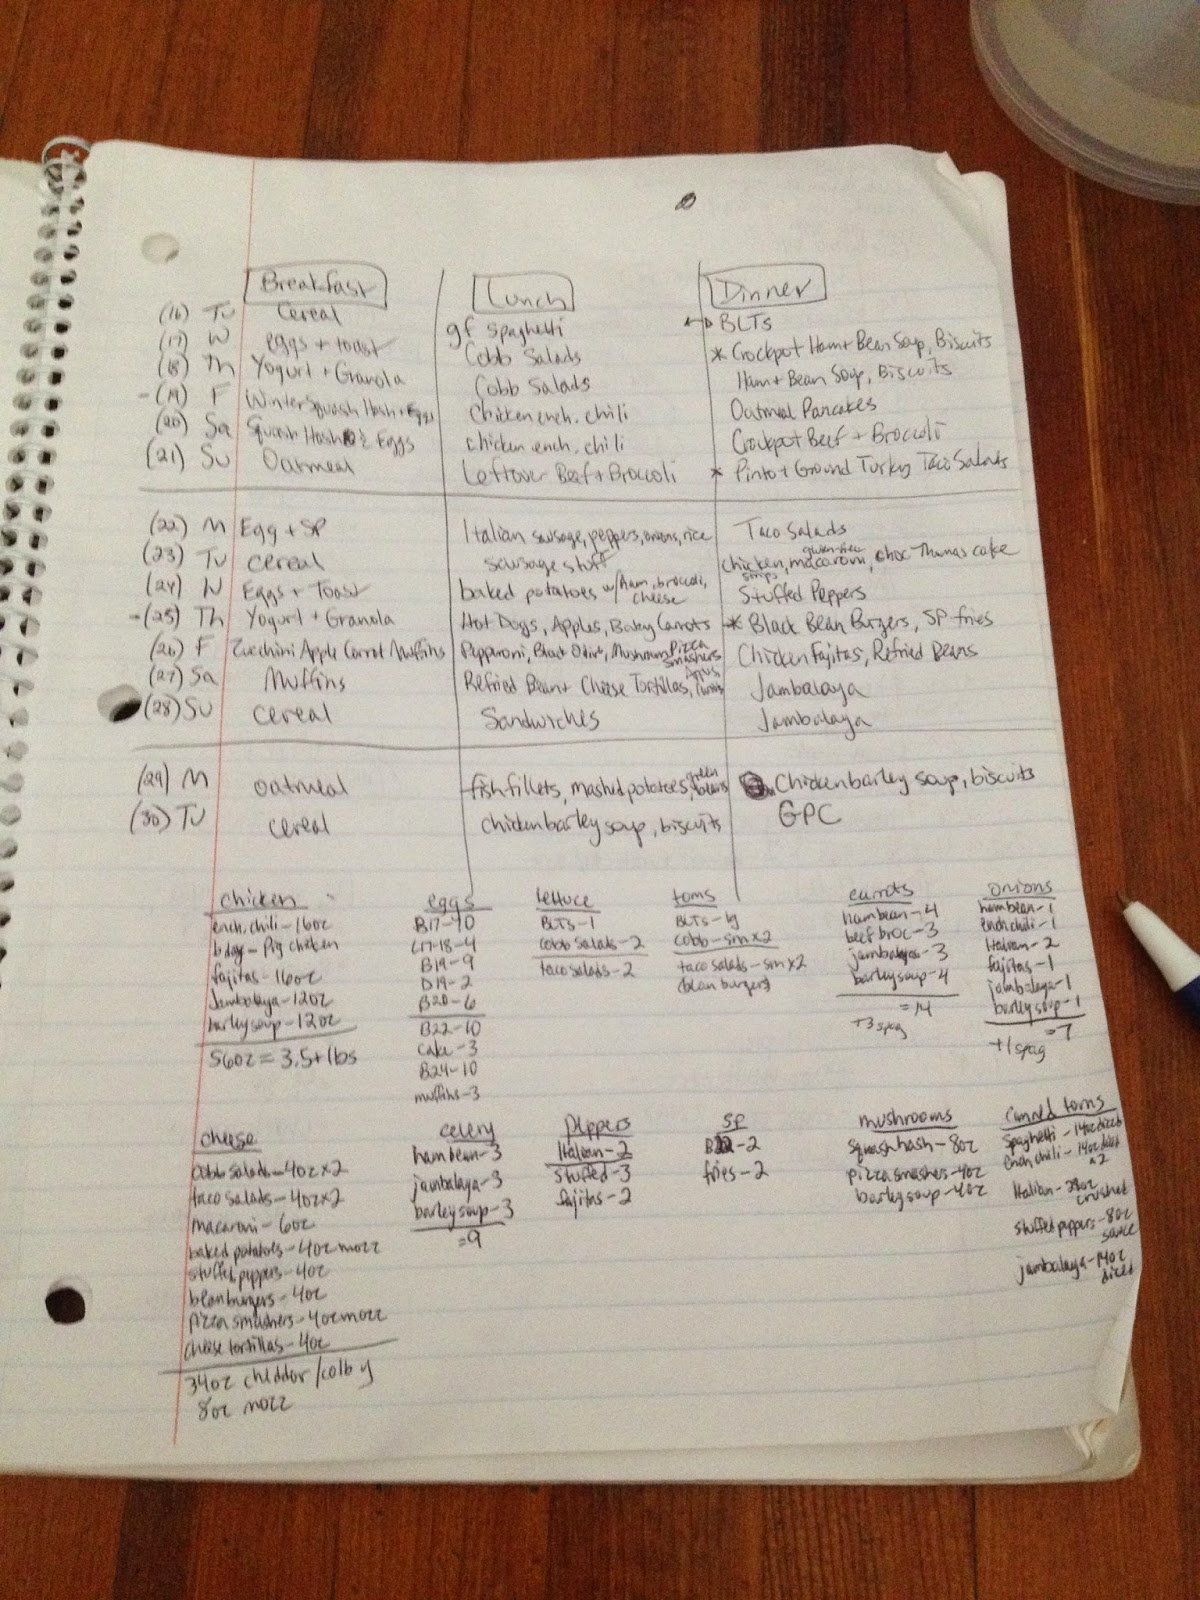 Breakfast Lunch Dinner
(16) Tu Cereal gf spaghetti BLTs
(17) W eggs + toast Cobb Salads * Crockpot Ham + Bean Soup, Biscuits
(18) Th Yogurt + Granola Cobb Salads Ham + Bean Soup, Biscuits
-(19) F Winter Squash Hash + Eggs Chicken ench. chili Oatmeal Pancakes
(20) Sa Squash Hash & Eggs chicken ench. chili Crockpot Beef + Broccoli
(21) Su Oatmeal Leftover Beef + Broccoli * Pinto + Ground Turkey Taco Salads
(22) M Egg + SP Italian sausage, peppers, onions, rice Taco Salads
(23) Tu cereal sausage stuff chicken strips, gluten-free macaroni, choc Thomas cake
(24) W Eggs + Toast baked potatoes w/ham, broccoli, cheese Stuffed Peppers
-(25) Th Yogurt + Granola Hot Dogs, Apples, Baby Carrots * Black Bean Burgers, SP fries
(26) F Zucchini Apple Carrot Muffins Pepperoni, Black Olive, Mushroom Pizza Smashers Chicken Fajitas, Refried Beans
(27) Sa Muffins Refried Bean + Cheese Tortillas, Jambalaya
(28) Su cereal Sandwiches Jambalaya
(29) M oatmeal fish fillets, mashed potatoes, green beans Chicken barley soup, biscuits
(30) Tu cereal chicken barley soup, biscuits GPC
chicken eggs lettuce toms carrots onions
ench. chili - 16oz B17-10 BLTs - 1 BLTs - lg ham bean - 4 ham bean - 1
bday - pkg chicken L17-18-4 cobb salads - 2 cobb - sm x 2 beef broc - 3 ench chili - 1
fajitas - 16oz B19-9 taco salads - 2 taco salads - sm x 2 jambalaya - 3 Italian - 2
Jambalaya - 12oz D19-2 (bean burgers) barley soup - 4 fajitas - 1
barley soup - 12oz B20-6 = 14 jambalaya - 1
56oz = 3.5+ lbs B22-10 +3 spag barley soup - 1
cake - 3 = 7
B24-10 +1 spag
muffins - 3
cheese celery peppers SP mushrooms canned toms
cobb salads - 4oz x 2 ham bean - 3 Italian - 2 B22-2 squash hash - 8oz spaghetti - 14oz diced
taco salads - 4oz x 2 jambalaya - 3 stuffed - 3 fries - 2 pizza smashers - 4oz ench chili - 14oz diced x 2
macaroni - 6oz barley soup - 3 fajitas - 2 barley soup - 4oz Italian - crushed
baked potatoes - 4oz mozz = 9 stuffed peppers - 8oz sauce
stuffed peppers - 4oz jambalaya - 14oz diced
bean burgers - 4oz
pizza smashers - 4oz mozz
cheese tortillas - 4oz
34oz cheddar/colby
8oz mozz